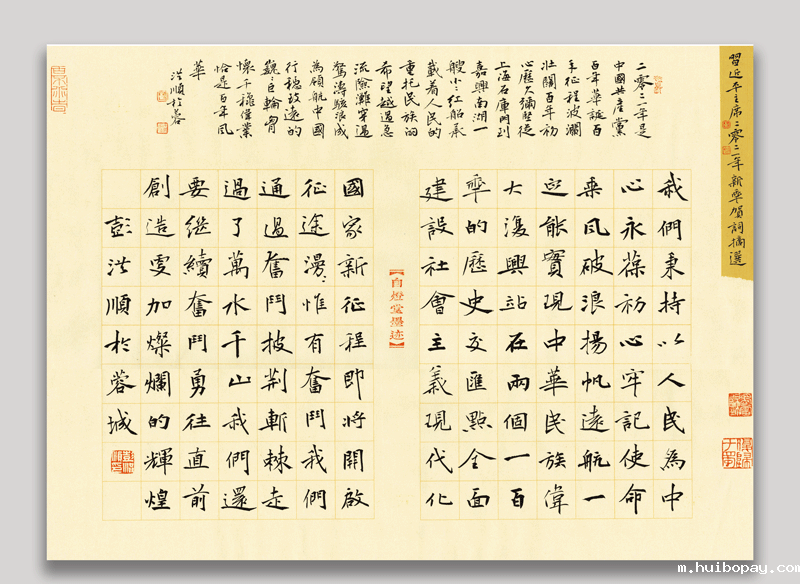 習近平主席二零二一年新年賀詞摘選
二零二一年是
中國共產黨
百年華誕百
年征程波瀾
壯闊百年初
心歷久彌堅從
上海石庫門到
嘉興南湖一
艘小〻紅船承
載着人民的
重托民族的
希望越過急
流險灘穿過
驚濤駭浪成
為領航中國
行穩致遠的
巍〻巨輪胸
懷千秋偉業
恰是百年風
華
洪順於蓉
我們秉持以人民為中
心永葆初心牢記使命
乘風破浪揚帆遠航一
定能實現中華民族偉
大復興站在兩個一百
年的歷史交匯點全面
建設社會主義現代化
【自燈堂墨迹】
國家新征程即將開啟
征途漫〻惟有奮鬥我們
通過奮鬥披荊斬棘走
過了萬水千山我們還
要繼續奮鬥勇往直前
創造更加燦爛的輝煌
彭洪順於蓉城
m.huibopay.com